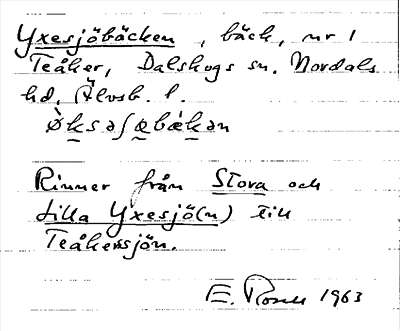 Yxesjöbäcken, bäck, nr 1
Teåker, Dalskogs sn. Nordals
hd, Älvsb. l.
ø̀ksəʃøbæ̀kən
Rinner från Stora och
Lilla Yxesjö(n) till
Teåkerssjön.
E. 1963